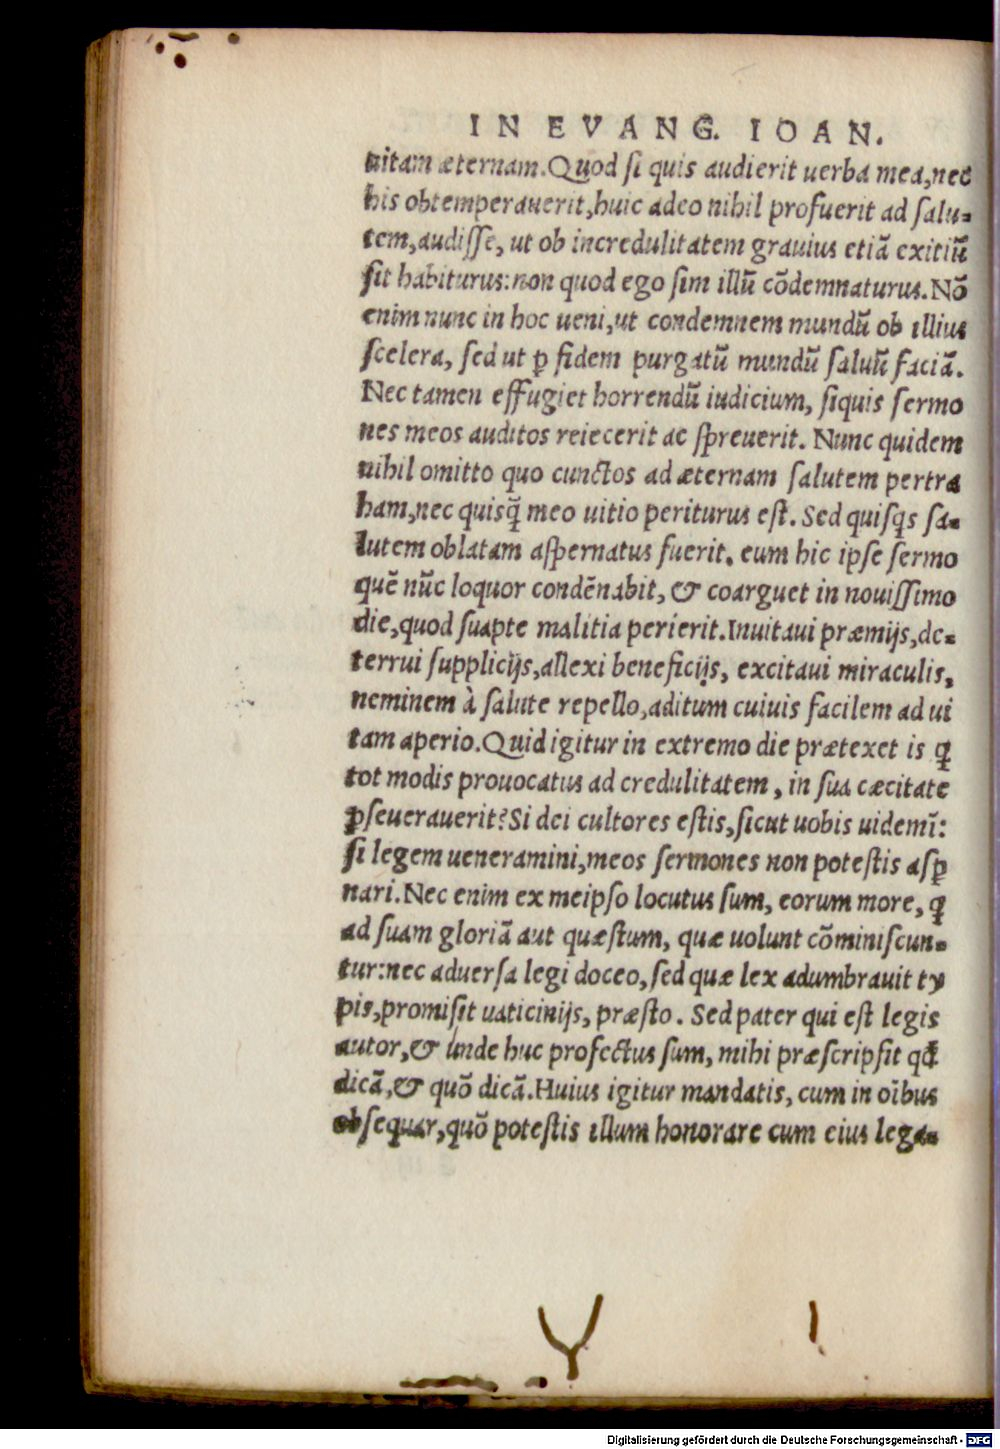 IN EVANG. IOAN.
uitam æternam. Quod ſi quis audierit uerba mea, nec
his obtemperauerit, huic adeo nihil profuerit ad ſalu-
tem, audiſſe, ut ob incredulitatem grauius etiā exitiū
ſit habiturus: non quod ego ſim illū cōdemnaturus. Nō
enim nunc in hoc ueni, ut condemnem mundū ob illius
ſcelera, ſed ut ꝑ fidem purgatū mundū ſaluū faciā.
Nec tamen effugiet horrendū iudicium, ſiquis ſermo
nes meos auditos reiecerit ac ſpreuerit. Nunc quidem
nihil omitto quo cunctos ad æternam ſalutem pertra
ham, nec quisq̄ meo uitio periturus eſt. Sed quiſqs ſa-
lutem oblatam aſpernatus fuerit. eum hic ipſe ſermo
quē nūc loquor condēnabit, & coarguet in nouiſſimo
die, quod ſuapte malitia perierit. Inuitaui præmijs, de-
terrui ſupplicijs, allexi beneficijs, excitaui miraculis,
neminem à ſalute repello, aditum cuiuis facilem ad ui
tam aperio. Quid igitur in extremo die prætexet is ꝗ
tot modis prouocatus ad credulitatem, in ſua cæcitate
ꝑſeuerauerit? Si dei cultores eſtis, ſicut uobis uidemī:
ſi legem ueneramini, meos ſermones non poteſtis aſꝑ
nari. Nec enim ex meipſo locutus ſum, eorum more, ꝗ
ad ſuam gloriā aut quæſtum, quæ uolunt cōminiſcun-
tur: nec aduerſa legi doceo, ſed quæ lex adumbrauit ty
pis, promiſit uaticinijs, præſto. Sed pater qui eſt legis
autor, & unde huc profectus ſum, mihi præſcripſit qđ
dicā, & quō dicā. Huius igitur mandatis, cum in oībus
obſequar, quō poteſtis illum honorare cum eius lega-
Digitalisierung gefördert durch die Deutsche Forschungsgemeinschaft - DFG